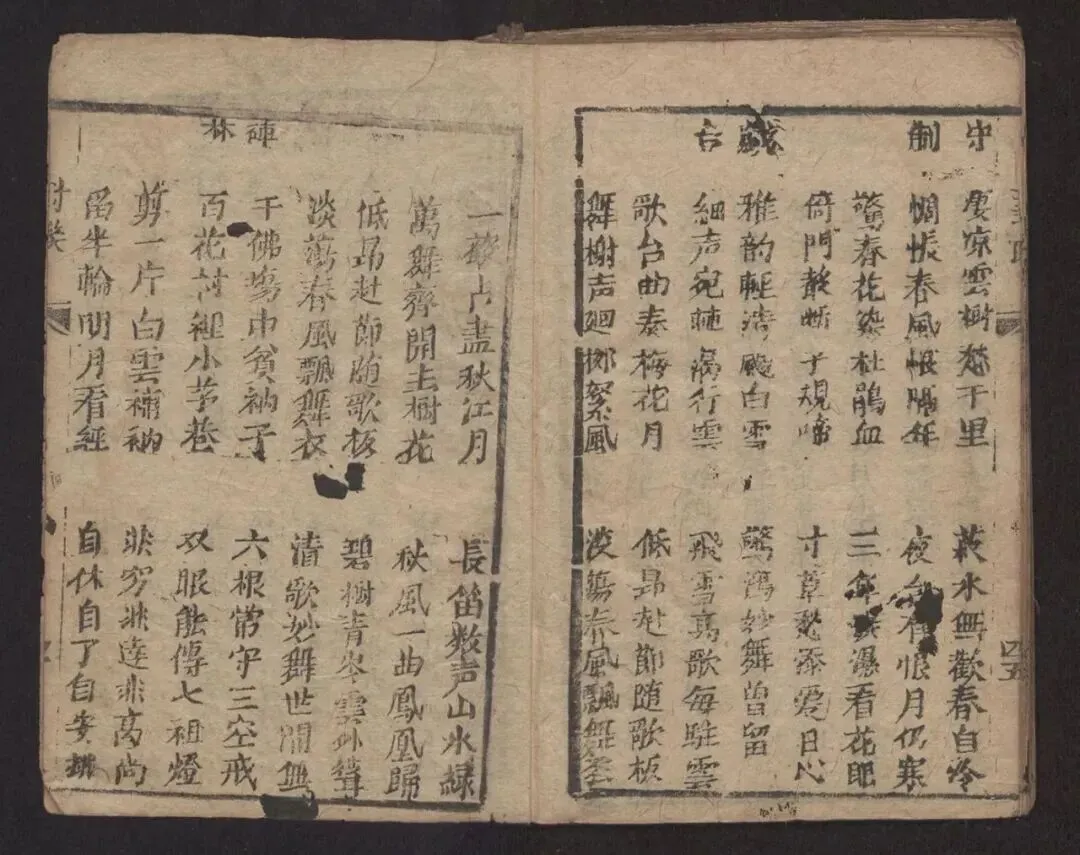 守制
凄凉雲樹愁千里
菽水無歡春自冷
惆悵春風恨隔年
夜台有恨月仍寒
驚春花染杜鵑血
三年淚濕看花眼
倚門聲断子規啼
寸草愁添爱日心
戲台
雅韵輕清飈白雪
驚鴻妙舞曾留
細声宛轉遏行雲
飛雪高歌每駐雲
歌台曲奏梅花月
低昂赴節随歌板
舞榭声廻柳絮風
淡蕩春風飄舞
四五
一聲占盡秋江月
長笛数声山水緑
萬舞齊開玉樹花
秋風一曲鳳凰歸
低昂赴節随歌板
碧樹青岑雲外聳
淡蕩春風飄舞衣
清歌妙舞世間無
禅林
千佛塲中貧衲子
六根常守三空戒
百花村裡小茅巷
双眼能傳七祖燈
剪一片白雲補衲
非穷非達非高尚
留半輪明月看經
自休自了自安排